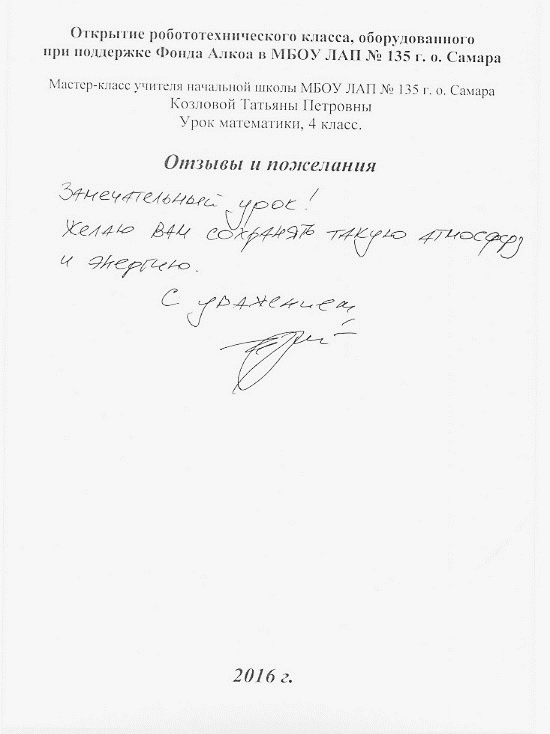 Открытие робототехнического класса, оборудованного
при поддержке Фонда Алкоа в МБОУ ЛАП № 135 г. о. Самара
Мастер-класс учителя начальной школы МБОУ ЛАП № 135 г. о. Самара
Козловой Татьяны Петровны
Урок математики, 4 класс.
Отзывы и пожелания
Замечательный урок!
Желаю Вам сохранять такую атмосферу
и энергию.
С уважением
2016 г.